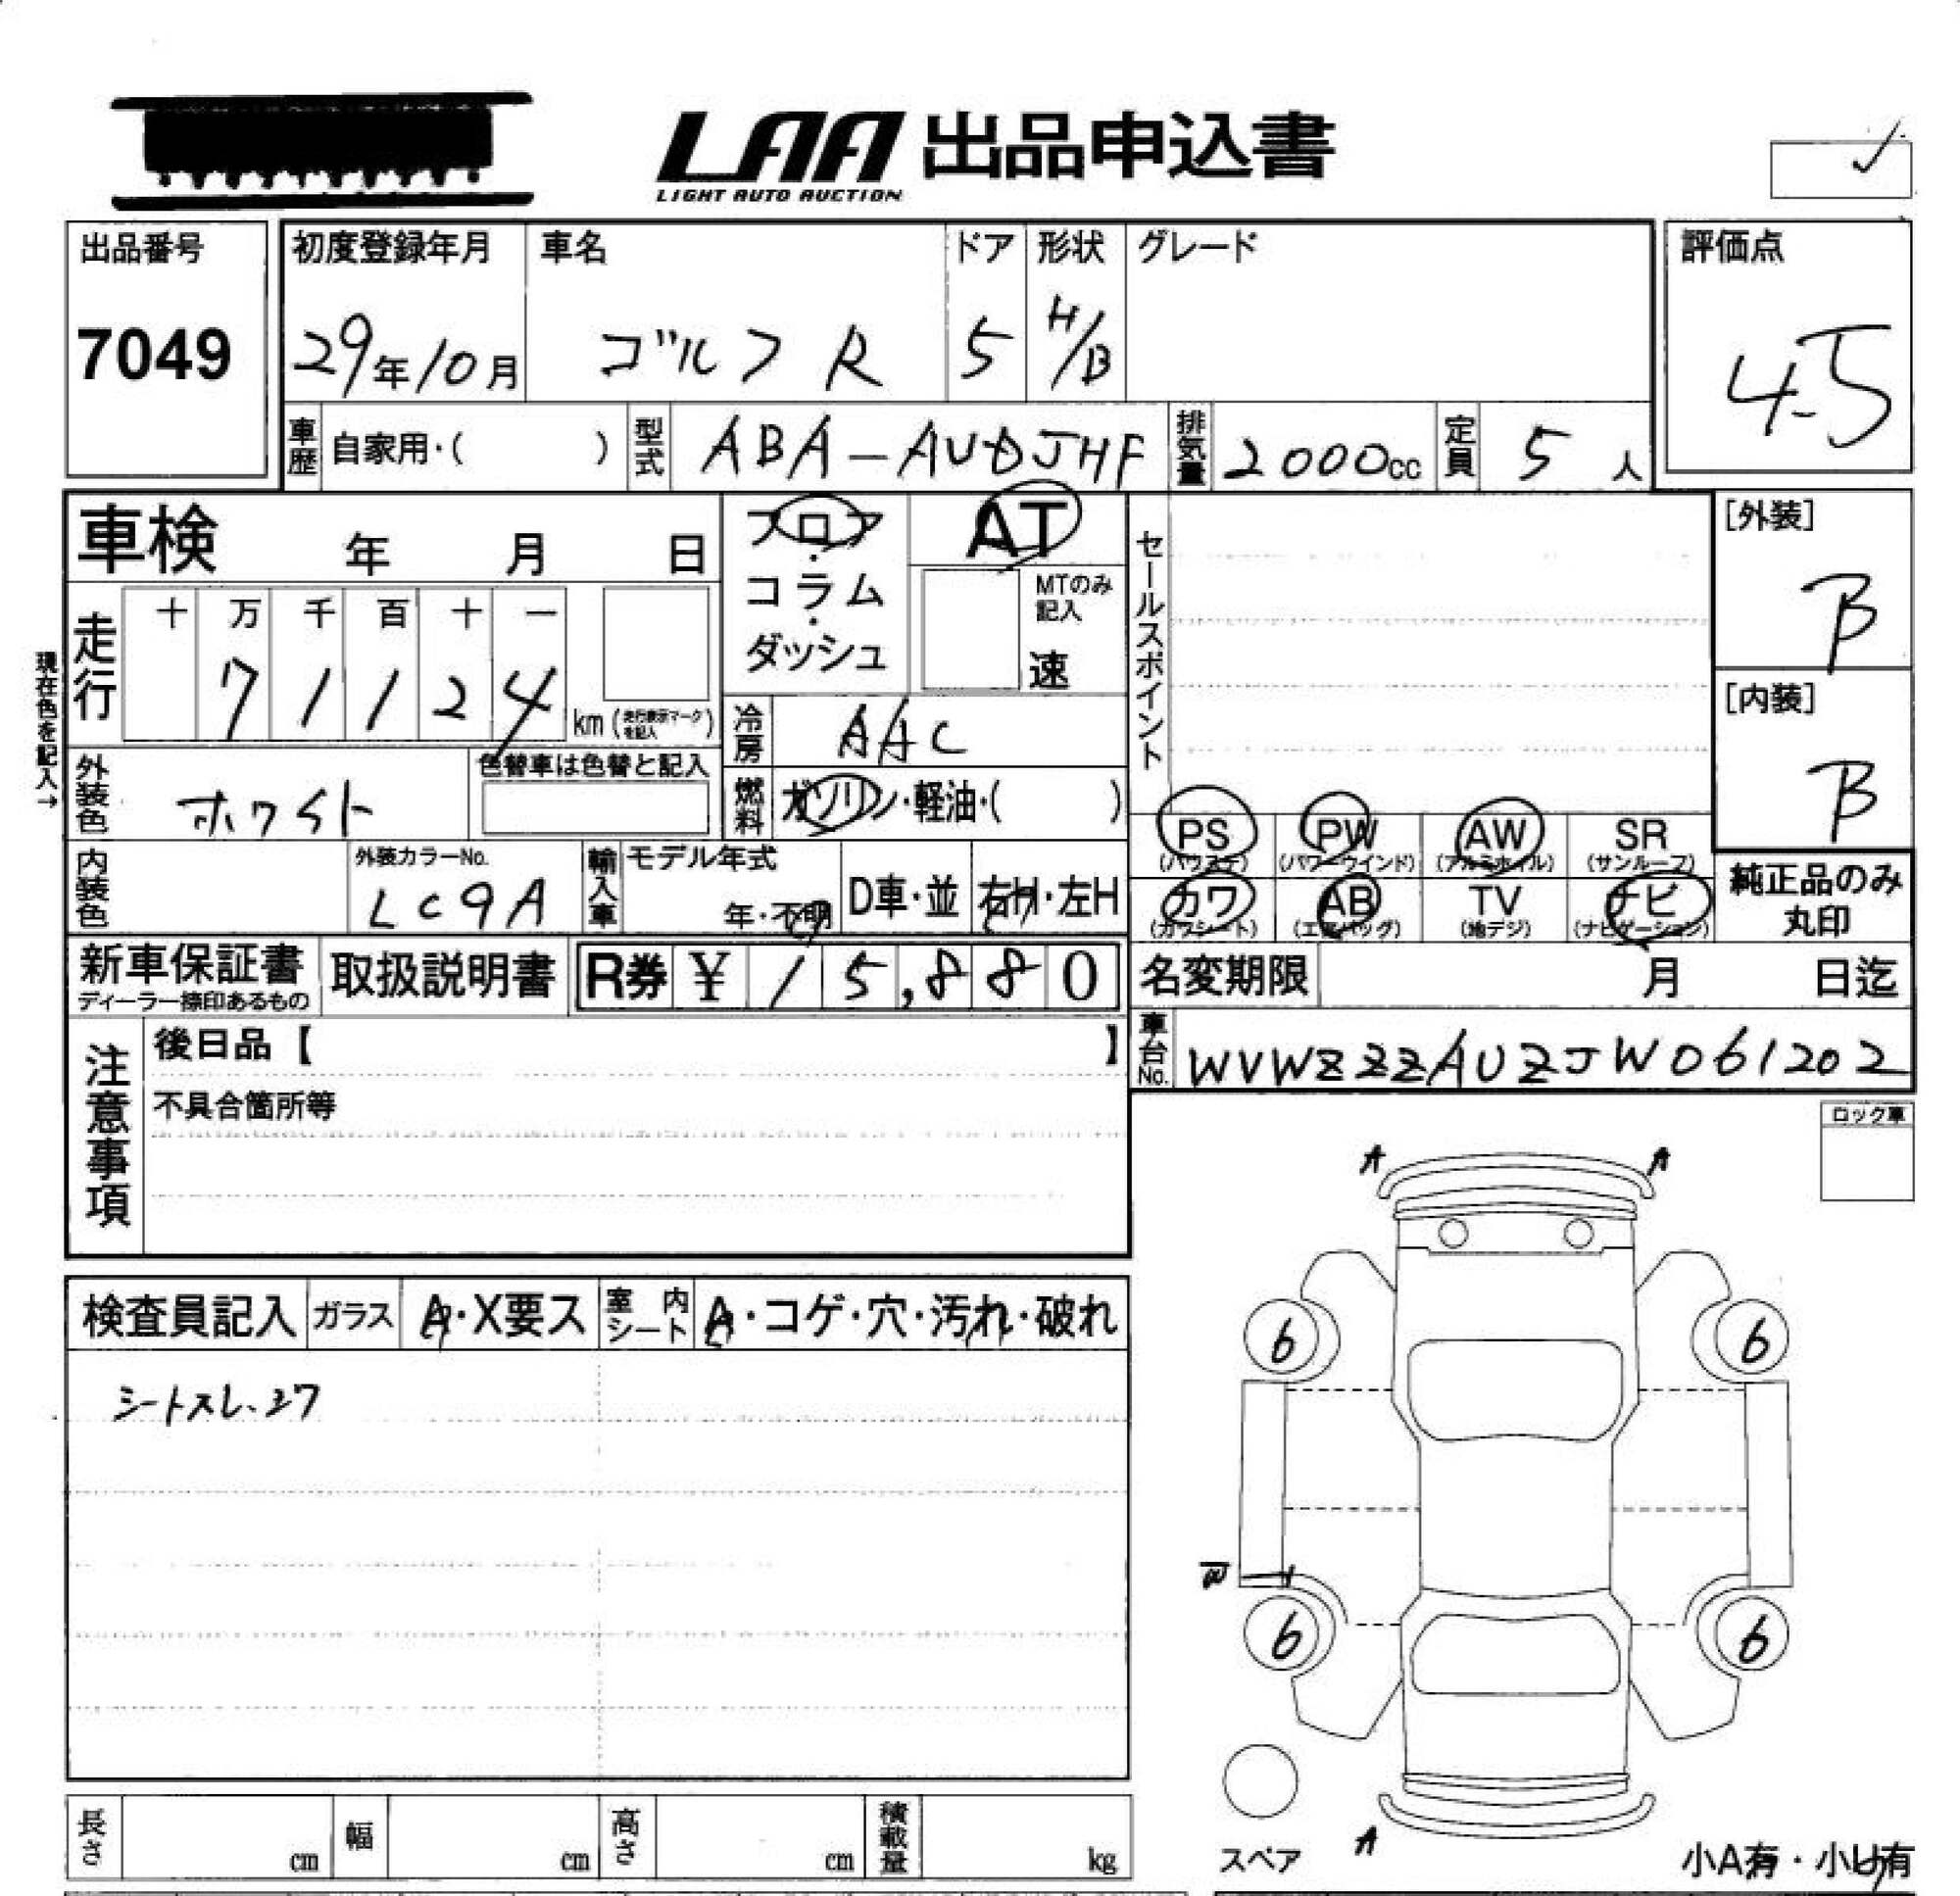 LAA 出品申込書
LIGHT AUTO AUCTION
出品番号
7049
初度登録年月
29年10月
車名
ゴルフ R
ドア
5
形状
H/B
グレード
評価点
4.5
車歴
自家用・( )
型式
ABA-AUDJHF
排気量
2000cc
定員
5人
車検 年 月 日
フロア・
コラム・
ダッシュ
AT
MTのみ
記入
速
セールスポイント
[外装]
B
[内装]
B
現在色を記入→
走行
十 万 千 百 十 一
7 1 1 2 4
km (走行表示マークを記入)
冷房
AAC
外装色
ホワイト
色替車は色替と記入
燃料
ガソリン・軽油・( )
PS
(パワステ)
PW
(パワーウインド)
AW
(アルミホイル)
SR
(サンルーフ)
カワ
(カワシート)
AB
(エアバッグ)
TV
(地デジ)
ナビ
(ナビゲーション)
純正品のみ
丸印
内装色
外装カラーNo.
LC9A
輸入車
モデル年式
年・不明
D車・並
右H・左H
新車保証書
ディーラー捺印あるもの
取扱説明書
R券 ¥ 15,880
名変期限 月 日迄
車台No.
WVWZZZAUZJW061202
注意事項
後日品【 】
不具合箇所等
ロック車
A A
検査員記入
ガラス
A・X要ス
室内シート
A・コゲ・穴・汚れ・破れ
シートスレ・シワ
6 6
6 6
スペア
A
小A有・小U有
長さ cm
幅 cm
高さ cm
積載量 kg